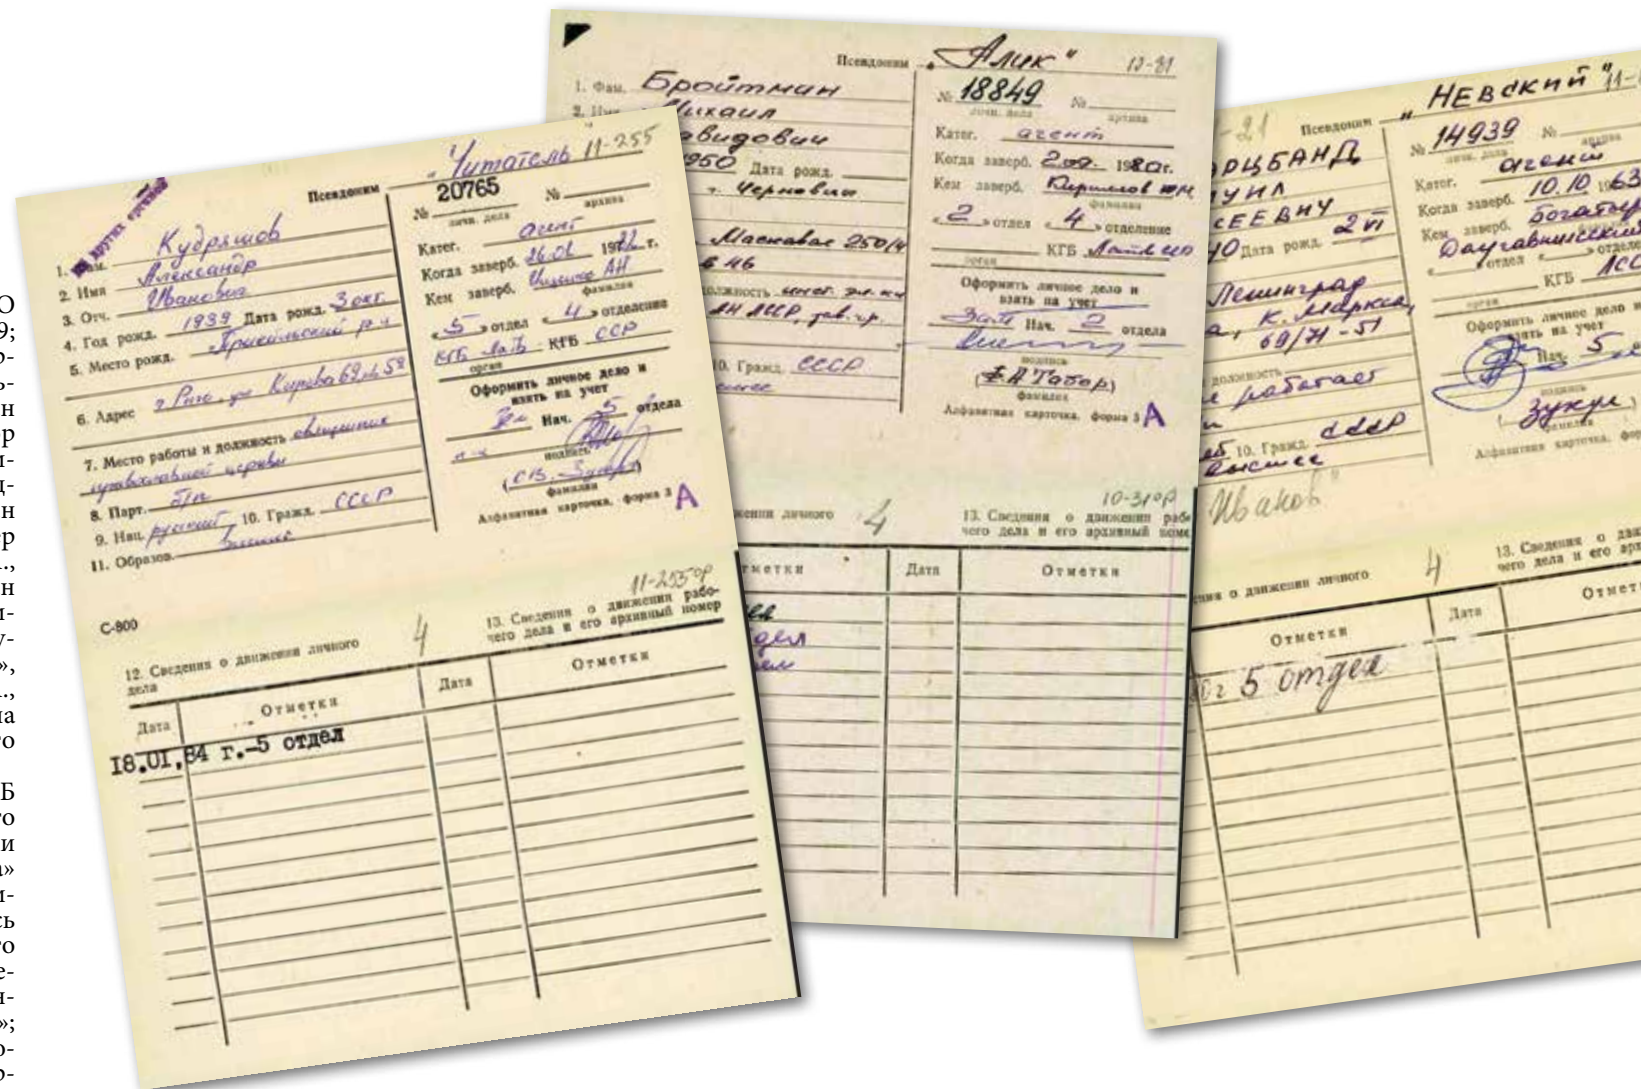 О
9;
р-
ь-
н
р
и-
ц-
н
ер
.,
н
и-
у-
»,
.,
на
го
Б
го
ки
а»
и-
сь
го
е-
н-
»;
о-
р-
Псевдоним „Читатель" 11-255
из других органов
1. Фам. Кудряшов
2. Имя Александр
3. Отч. Иванович
4. Год рожд. 1939 Дата рожд. 3 окт.
5. Место рожд.
6. Адрес г Рига, ул Кирова 69 58
7. Место работы и должность священник
православной церкви
8. Парт. б/п
9. Нац. русский 10. Гражд. СССР
11. Образов. Высшее
№ 20765 №
личн. дела архива
Катег. агент
Когда заверб. 26.01 1982 г.
Кем заверб. АН
фамилия
«5» отдел «4» отделение
КГБ Латв КГБ ССР
орган
Оформить личное дело и
взять на учет
Нач. 5 отдела
подпись
фамилия
Алфавитная карточка, форма 3 А
С-800
11-255 ор
12. Сведения о движении личного
дела
4
13. Сведения о движении рабо-
чего дела и его архивный номер
Дата Отметки Дата Отметки
18.01.84 г.-5 отдел
Псевдоним „Алик"
1. Фам. Бройтман
2. Имя Михаил
авидович
1950 Дата рожд.
г. Черновцы
Маскавас 250/4
в 46
должность
АН ЛССР, зав. гр.
10. Гражд. СССР
№ 18849 №
личн. дела архива
Катег. агент
Когда заверб. 1980 г.
Кем заверб. Кириллов
фамилия
«2» отдел «4» отделение
КГБ Латв ССР
орган
Оформить личное дело и
взять на учет
Зам Нач. 2 отдела
подпись
фамилия
Алфавитная карточка, форма 3 А
10-31 ор
жении личного
4
13. Сведения о движении рабо
чего дела и его архивный номе
тметки Дата Отметки
дел
-21 Псевдоним „НЕВСКИЙ"
РЦБАНД
УИЛ
СЕЕВИЧ
40 Дата рожд. 2 VI
Ленинград
а, К. Маркса,
69/71 - 51
должность
работает
10. Гражд. СССР
Высшее
№ 14939 №
личн. дела архива
Катег. агент
Когда заверб. 10.10 1963
Кем заверб.
Даугавпилсский
отдел отделе
КГБ ЛСС
орган
Оформить личное дело и
взять на учет
Нач. 5
подпись
Зукул
фамилия
Алфавитная карточка, фор
Иванов"
ения о движении личного
4
13. Сведения о движ
чего дела и его арх
Отметки Дата Отмет
5 отдел